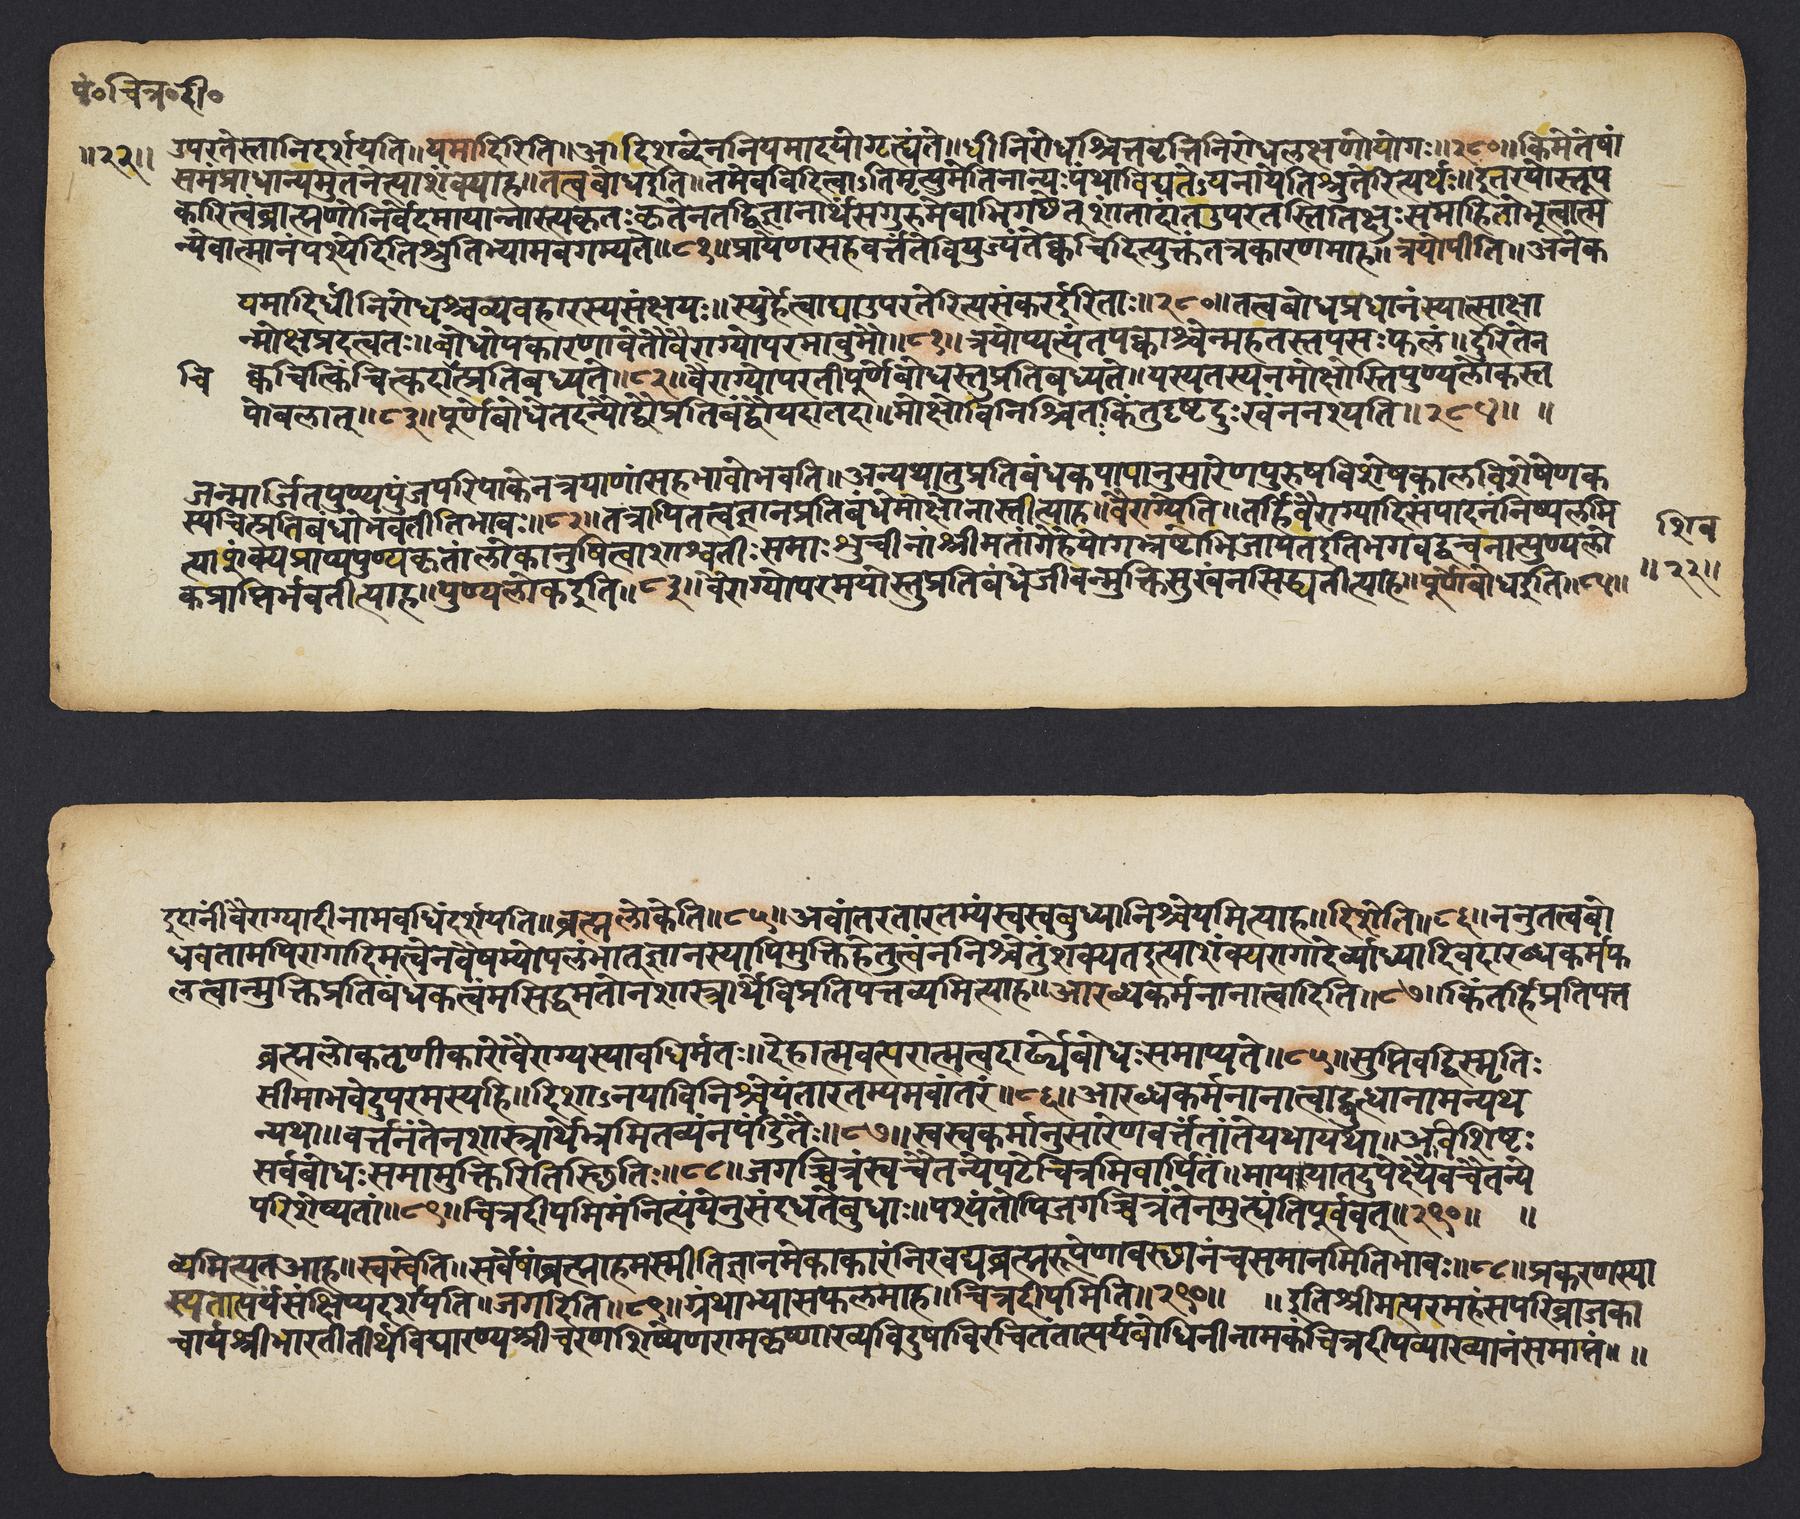 पं॰चित्र॰दी॰
॥२२॥
उपरतेस्तानिदर्शयति॥यमादिरिति॥आदिशब्देननियमादयोगृह्यंते॥धीनिरोधश्चित्तवृत्तिनिरोधलक्षणोयोगः॥२८०॥किमेतेषां
समंप्राधान्यमुतनेत्याशंक्याह॥तत्वबोधइति॥तमेवविदित्वाऽतिमृत्युमेतिनान्यःपंथाविद्यतेऽयनायेतिश्रुतेरित्यर्थः॥इतरयोस्तूप
कारित्वंब्राह्मणोनिर्वेदमायान्नास्त्यकृतःकृतेनतद्विज्ञानार्थंसगुरुमेवाभिगछेत्शांतोदांतउपरतस्तितिक्षुःसमाहितोभूत्वात्म
न्येवात्मानंपश्येदितिश्रुतिभ्यामवगम्यते॥८१॥प्रायेणसहवर्त्तंतेवियुज्यंतेक्वचिदित्युक्तंतत्रकारणमाह॥त्रयोपीति॥अनेक
यमादिर्धीनिरोधश्चव्यवहारस्यसंक्षयः॥स्युर्हेत्वाद्याउपरतेरित्यसंकरईरिताः॥२८०॥तत्वबोधप्रधानंस्यात्साक्षा
न्मोक्षप्रदत्वतः॥बोधोपकारणावेतौवैराग्योपरमावुभौ॥८१॥त्रयोप्यत्यंतपक्वाश्चेन्महतस्तपसःफलं॥दुरितेन
चि
क्वचित्किंचित्कदाप्रतिबध्यते॥८२॥वैराग्योपरतीपूर्णेबोधस्तुप्रतिबध्यते॥यस्यतस्यनमोक्षोस्तिपुण्यलोकस्त
पोबलात्॥८३॥पूर्णेबोधेतदन्यौद्वौप्रतिबद्धौयदातदा॥मोक्षोविनिश्चितःकिंतुदृष्टदुःखंननश्यति॥२८४॥ ॥
जन्मार्जितपुण्यपुंजपरिपाकेनत्रयाणांसहभावोभवति॥अन्यथातुप्रतिबंधकपापानुसारेणपुरुषविशेषेकालविशेषेणक
स्यचित्प्रतिबंधोभवतीतिभावः॥८२॥तत्रापितत्वज्ञानप्रतिबंधेमोक्षोनास्तीत्याह॥वैराग्येति॥तर्हिवैराग्यादिसंपादनंनिष्फलमि
त्याशंक्यप्राप्यपुण्यकृतांलोकानुषित्वाशाश्वतीःसमाःशुचीनांश्रीमतांगेहेयोगभ्रष्टोभिजायतइतिभगवद्वचनात्पुण्यलो
कप्राप्तिर्भवतीत्याह॥पुण्यलोकइति॥८३॥वैराग्योपरमयोस्तुप्रतिबंधेजीवन्मुक्तिसुखंनसिद्ध्यतीत्याह॥पूर्णेबोधइति॥८४॥
शिव
॥२२॥
इदानींवैराग्यादीनामवधिंदर्शयति॥ब्रह्मलोकेति॥८५॥अवांतरतारतम्यंस्वस्वबुध्यानिश्चेयमित्याह॥दिशेति॥८६॥ननुतत्वबो
धवतामपिरागादिमत्वेनवैषम्योपलंभात्ज्ञानस्यापिमुक्तिहेतुत्वंननिश्चेतुंशक्यतइत्याशंक्यरागादेर्व्याध्यादिवदारब्धकर्मफ
लत्वान्मुक्तिप्रतिबंधकत्वमसिद्धमतोनशास्त्रार्थेविप्रतिपत्तव्यमित्याह॥आरब्धकर्मनानात्वादिति॥८७॥किंतर्हिप्रतिपत्त
ब्रह्मलोकतृणीकारोवैराग्यस्यावधिर्मतः॥देहात्मवत्परात्मत्वदार्ढ्येबोधःसमाप्यते॥८५॥सुप्तिवद्विस्मृतिः
सीमाभवेदुपरमस्यहि॥दिशाऽनयाविनिश्चेयंतारतम्यमवांतरं॥८६॥आरब्धकर्मनानात्वाद्बुद्धानामन्यथ
न्यथा॥वर्त्तनंतेनशास्त्रार्थेभ्रमितव्यंनपंडितैः॥८७॥स्वस्वकर्मानुसारेणवर्त्ततांतेयथायथा॥अविशिष्टः
सर्वबोधःसमामुक्तिरितिस्थितिः॥८८॥जगच्चित्रंस्वचैतन्येपटेचित्रमिवार्पितं॥माययातदुपेक्ष्यैवचैतन्ये
परिशेष्यतां॥८९॥चित्रदीपमिमंनित्यंयेनुसंदधतेबुधाः॥पश्यंतोपिजगच्चित्रंतेनमुह्यंतिपूर्ववत्॥२९०॥ ॥
व्यमित्यतआह॥स्वस्वेति॥सर्वेषांब्रह्माहमस्मीतिज्ञानमेकाकारंनिरवद्यब्रह्मरूपेणावस्थानंचसमानमितिभावः॥८८॥प्रकरणस्या
स्यतात्पर्यंसंक्षिप्यदर्शयति॥जगदिति॥८९॥ग्रंथाभ्यासफलमाह॥चित्रदीपमिति॥२९०॥ ॥इतिश्रीमत्परमहंसपरिव्राजका
चार्यश्रीभारतीतीर्थविद्यारण्यश्रीचरणशिष्येणरामकृष्णाख्यविदुषाविरचितंतात्पर्यबोधिनीनामकंचित्रदीपव्याख्यानंसमाप्तं॥ ॥